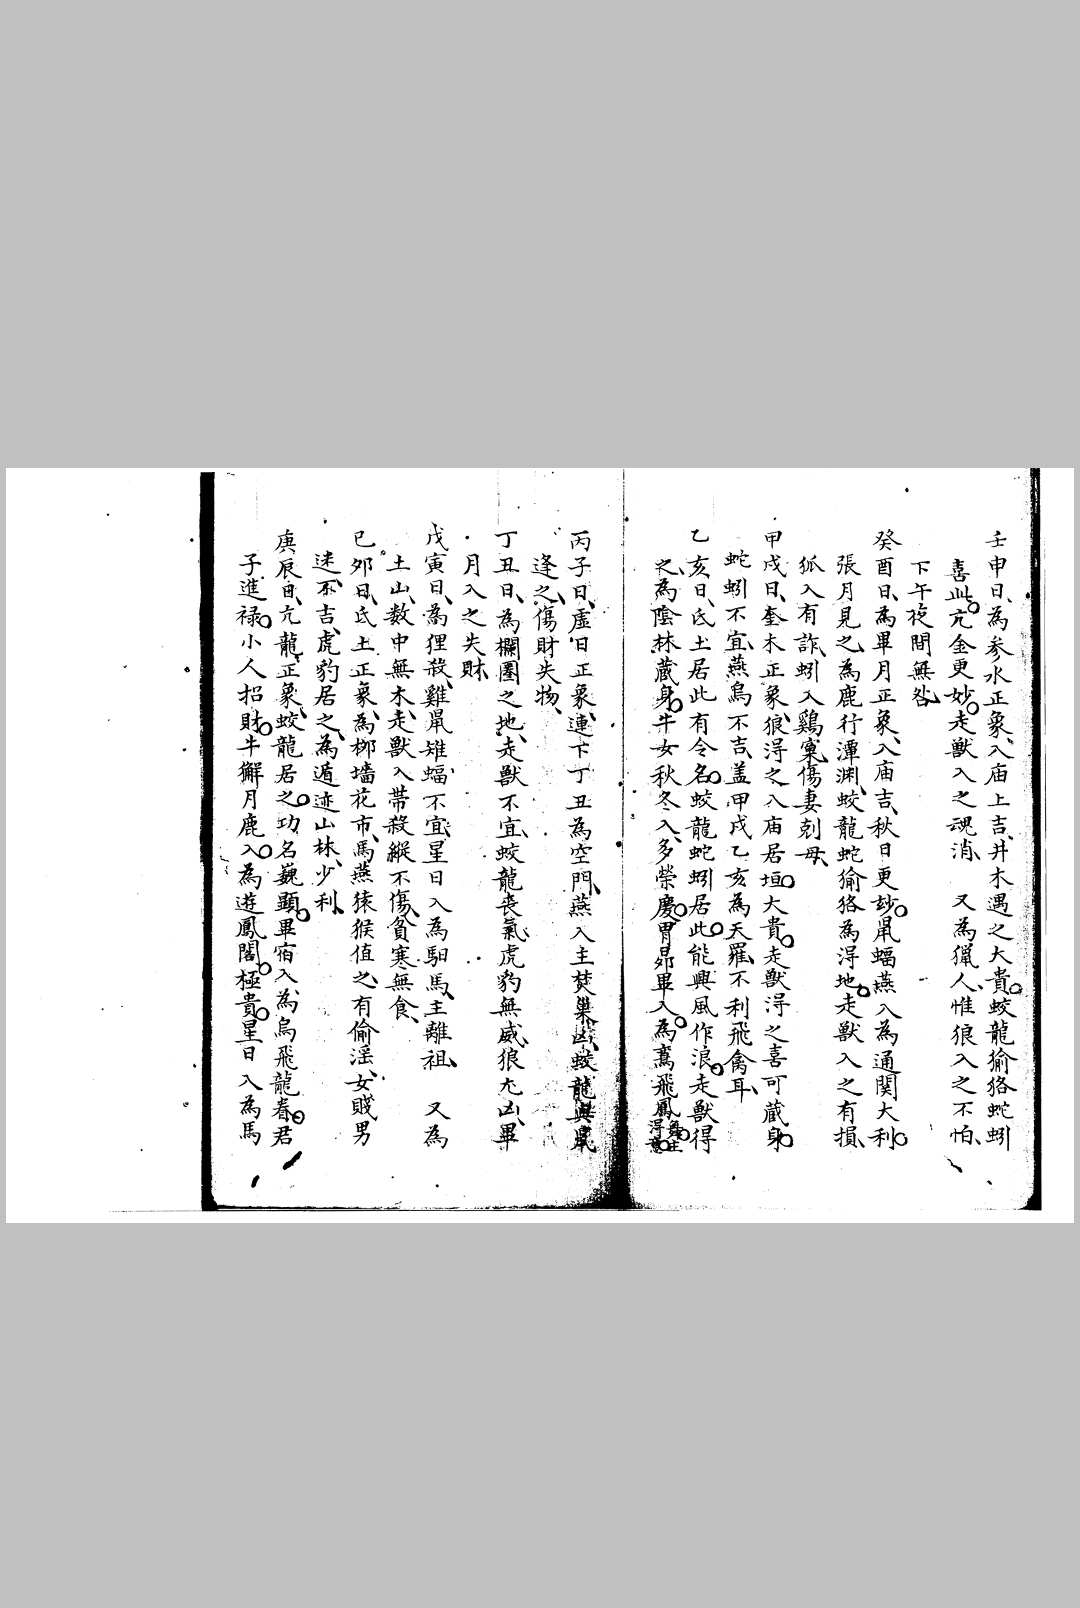 壬申日、為参水正象、入庙上吉、井木遇之大貴。蛟龍㺄狢蛇蚓
喜此。亢金更妙。走獸入之魂消、又為獵人、惟狼入之不怕、
下午夜間無咎、
癸酉日、為畢月正象、入庙吉、秋日更玅。鼠蝠燕入為通関大利。
張月見之、為鹿行潭渊、蛟龍蛇㺄狢為淂地。走獸入之有損、
狐入有詐、蚓入鷄窠、傷妻剋母、
甲戌日、奎木正象、狼淂之入庙居垣。大貴。走獸淂之喜可蔵身。
蛇蚓不宜、燕烏不吉、盖甲戌乙亥為天羅、不利飛禽耳、
乙亥日、氐土居此有令名。蛟龍蛇蚓居此。能興風作浪。走獸得
之、為陰林蔵身。牛女秋冬入、多榮慶。胃昴畢入。為鸞飛鳳舞主淂意。
丙子日、虚日正象、連下丁丑為空門、燕入主焚巢凶、蛟龍與鼠
逢之、傷財失物、
丁丑日、為欄圈之地、走獸不宜、蛟龍喪氣、虎豹無威、狼尤凶、畢
月入之失財、
戊寅日、為狸殺、雞鼠雉蝠不宜、星日入為馹馬、主離祖、又為
土山、数中無木、走獸入帶殺、縱不傷、貧寒無食、
己夘日、氐土正象、為柳墻花市、馬燕猿猴值之、有偷淫、女賤男
迷不吉、虎豹居之、為遁迹山林、少利、
庚辰日、亢龍正象、蛟龍居之。功名巍顯。畢宿入為烏飛龍春。君
子進禄。小人招財。牛獬月鹿入。為遊鳳閣。極貴。星日入為馬